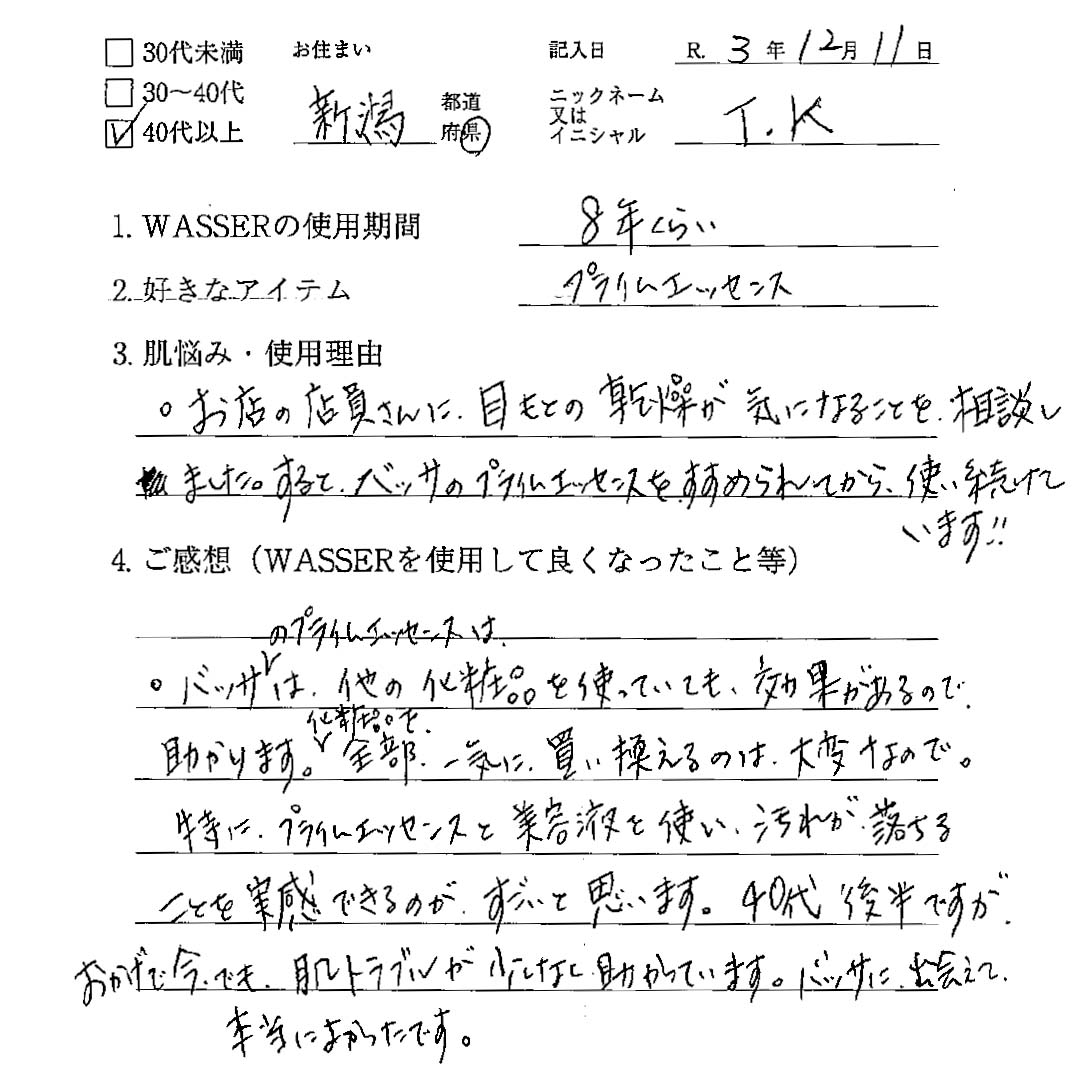 30代未満 お住まい 記入日 R. 3年12月11日
30〜40代 新潟 都道府県 ニックネーム又はイニシャル T.K
40代以上
1. WASSERの使用期間 8年くらい
2. 好きなアイテム プライムエッセンス
3. 肌悩み・使用理由
。お店の店員さんに、目もとの乾燥が気になることを、相談し
ました。すると、バッサのプライムエッセンスをすすめられてから、使い続けて
います!!
4. ご感想（WASSERを使用して良くなったこと等）
のプライムエッセンスは、
。バッサは、他の化粧品を使っていても、効果があるので、
化粧品を、
助かります。全部、一気に、買い換えるのは、大変なので。
特に、プライムエッセンスと美容液を使い、汚れが、落ちる
ことを実感できるのが、すごいと思います。40代後半ですが、
おかげで今、でも、肌トラブルが少なく助かっています。バッサに、出会えて、
本当によかったです。